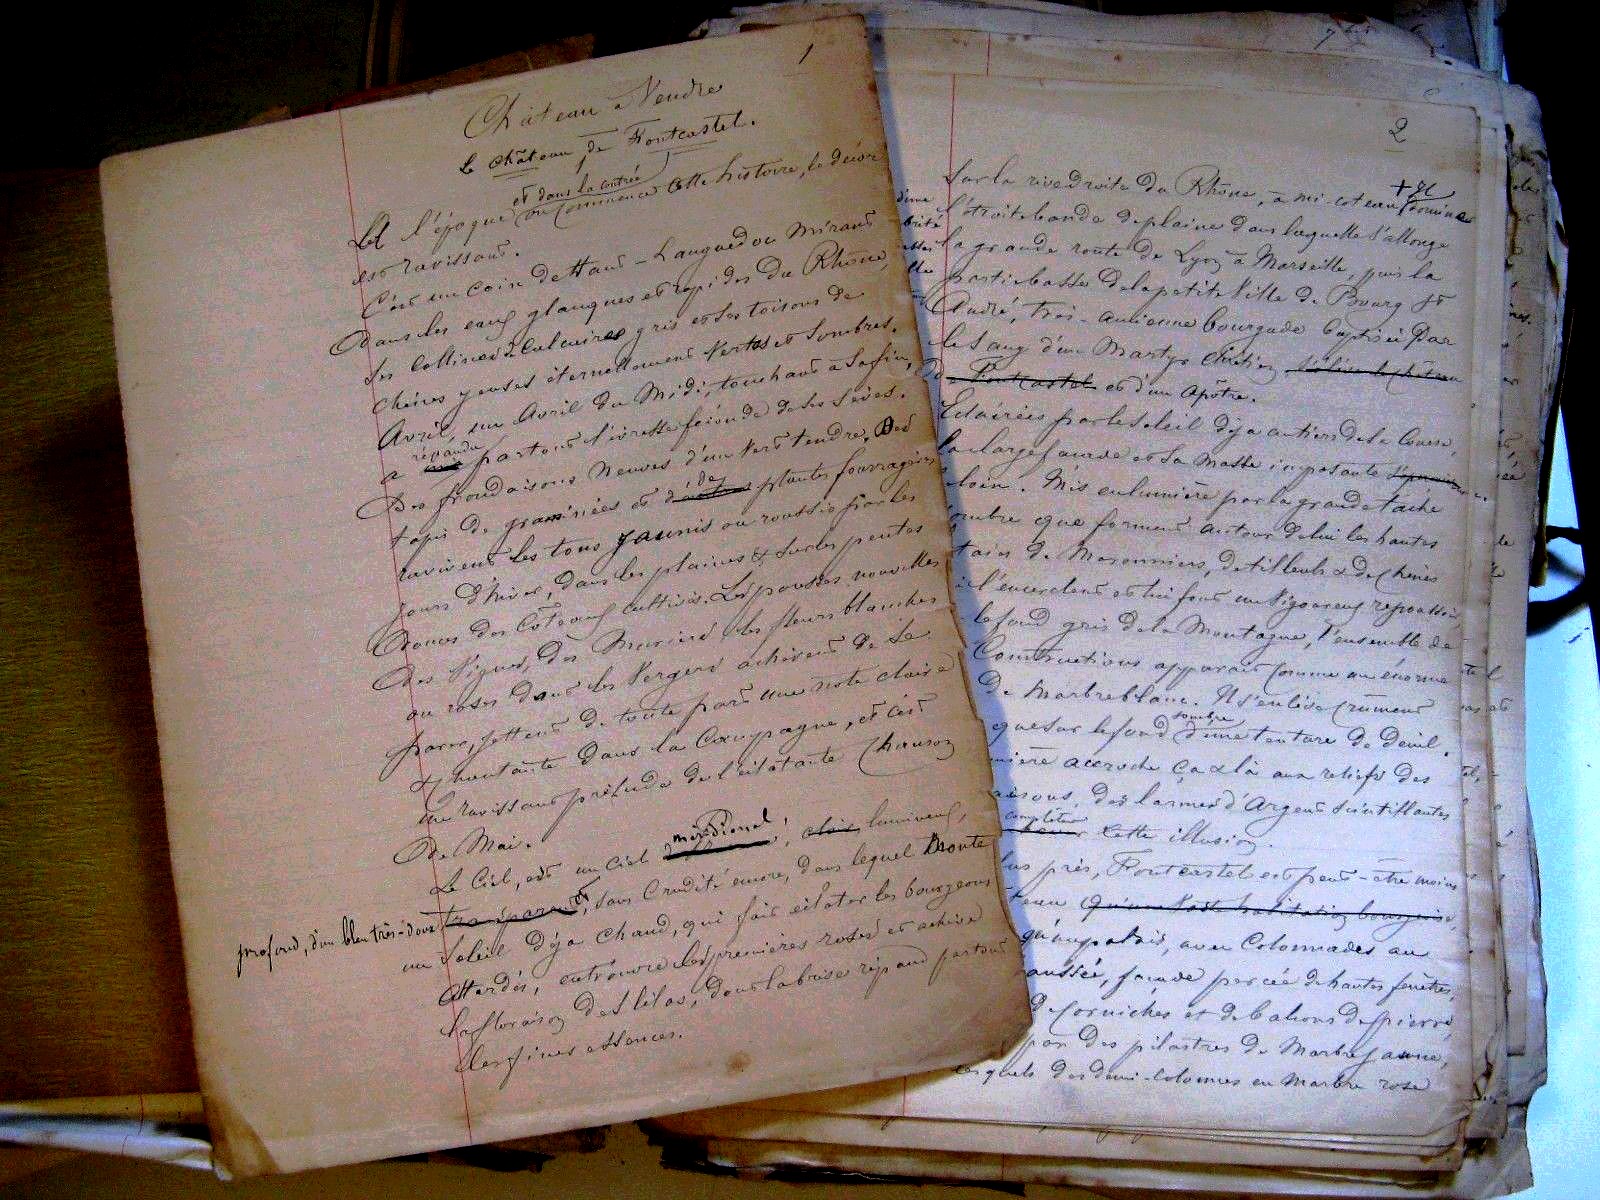 1
Château à Vendre
Le Château de Fontcastel.
et dans la contrée
A l'époque où commence cette histoire, le décor
est ravissant.
C'est un coin de Haut-Languedoc mirant
dans les eaux glauques et rapides du Rhône,
ses collines de calcaire gris et ses toisons de
chênes yeuses éternellement vertes et sombres.
Avril, un Avril du Midi, touchant à sa fin,
répandu
a partout l'ivresse féconde de ses sèves.
Des frondaisons neuves d'un vert tendre. Des
de
tapis de graminées et d' plantes fourragères
ravivent les tons jaunis ou roussis par les
jours d'hiver, dans les plaines & sur les pentes
douces des côteaux cultivés. Les pousses nouvelles
des vignes, des muriers les fleurs blanches
ou roses dans les vergers achèvent de se
parer, jettent de toute part une note claire
& chantante dans la campagne, et c'est
un ravissant prélude de l'éclatante chanson
de Mai.
méridional,
Le Ciel, est un ciel clair, lumineux,
profond, d'un bleu très-doux transparent, sans crudité encore, dans lequel monte
un soleil déjà chaud, qui fait éclater les bourgeons
attardés, entrouvre les premières roses et achève
la floraison des lilas, dont la brise répand partout
les fines essences.
2
Sur la rive droite du Rhône, à mi-coteau domine
l'étroite bande de plaine dans laquelle s'allonge
la grande route de Lyon à Marseille, puis la
partie basse de la petite Ville de Bourg St
André, très-ancienne bourgade baptisée par
le sang d'un Martyr chrétien s'élève le château
de Fontcastel et d'un Apôtre.
Eclairées par le soleil déjà au tiers de sa course,
la large façade et sa masse imposante
loin. Mis en lumière par la grande tâche
ombre que forment autour de lui les hautes
de Maronniers, de tilleuls & de chênes
l'encerclent et lui font un vigoureux repoussoir,
le fond gris de la Montagne, l'ensemble de
Constructions apparaît comme un énorme
de Marbre blanc. Il s'enlève crûment
sombre
que sur le fond d'une tenture de deuil.
mière accroche ça & là aux reliefs des
aisons, des larmes d'Argent scintillantes
compléter
cette illusion.
lus près, Fontcastel est peut-être moins
teau qu'une vaste habitation bourgeoise,
qu'un palais, avec Colonnades au
aussée, façade percée de hautes fenêtres,
de corniches et de balcons de pierre,
par des pilastres de Marbre jaune,
lesquels des demi-colonnes en Marbre rose